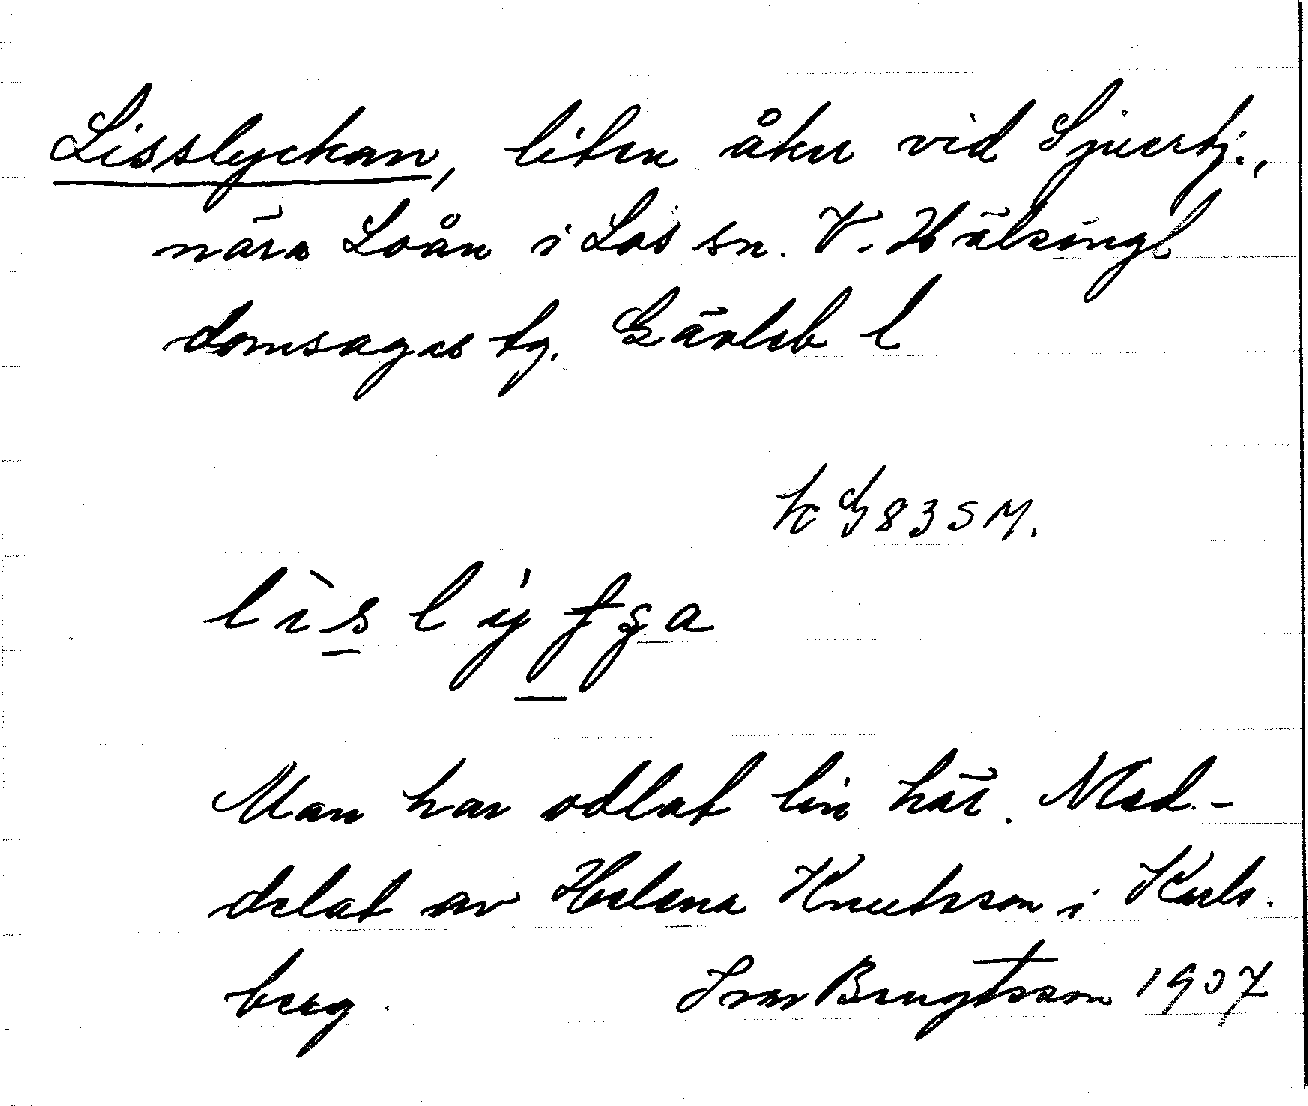 Lisslyckan, liten åker vid Sjuertj.,
nära Loån i Los sn. V. Hälsingl
domsagas tg. Gävleb l
83 SM.
Man har odlat lin här. Med-
delat av Helena Knutsson i Karls-
berg. Ivar Bengtsson 1937